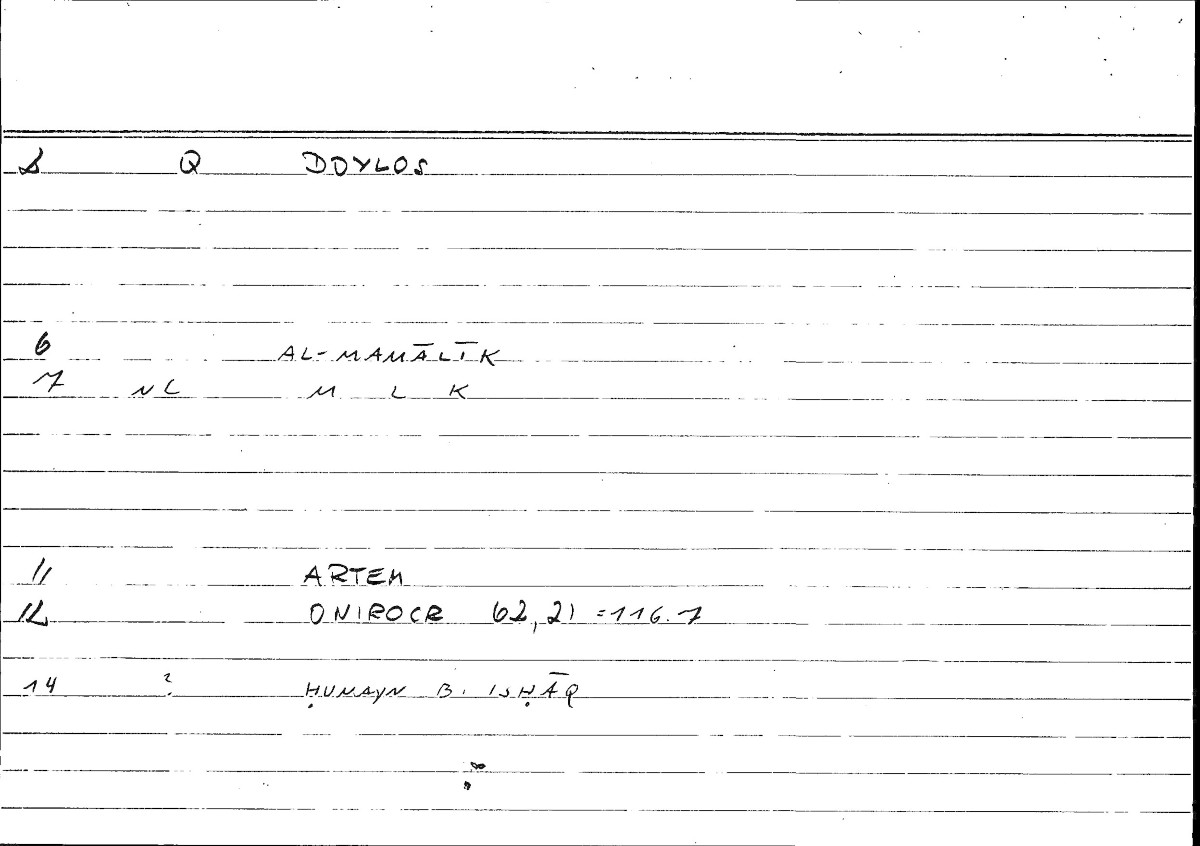 1 Q DOYLOS
6 AL-MAMĀLĪK
7 NL M L K
11 ARTEM
12 ONIROCR 62,21 =116.7
14 ? ḤUNAYN B. ISḤĀQ